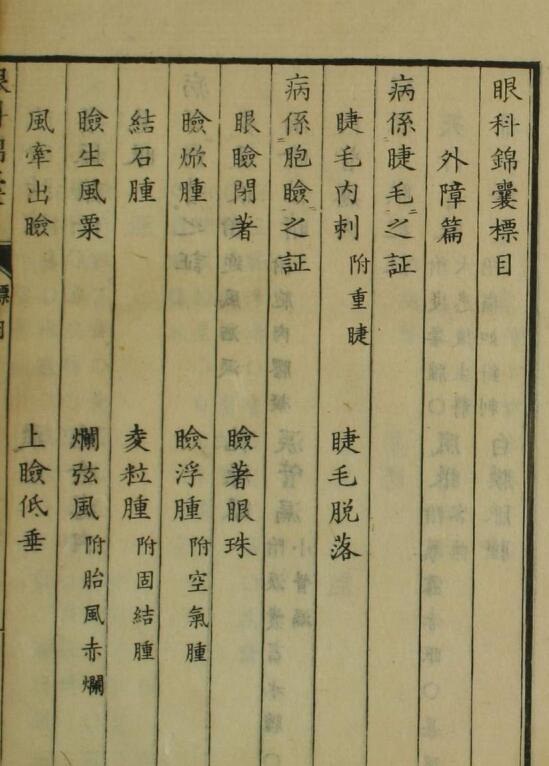 眼科錦囊標目
外障篇
病係睫毛之証
睫毛内刺 附重睫 睫毛脱落
病係胞瞼之証
眼瞼閉著 瞼著眼珠
瞼焮腫 瞼浮腫 附空氣腫
結石腫 麦粒腫 附固結腫
瞼生風粟 爛弦風 附胎風赤爛
風牽出瞼 上瞼低垂